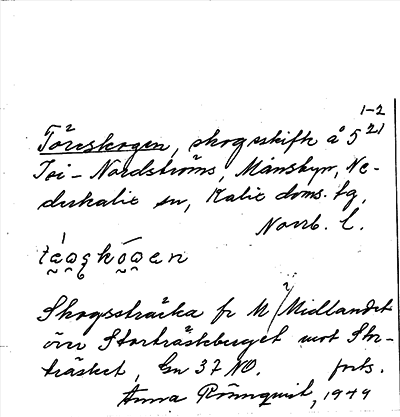 1-2
Töreskogen, skogsskifte å 5 21
Toi-Nordströms, Månsbyn, Ne-
derkalix sn, Kalix doms. tg,
Norrb. l.
Skogssträcka fr M Midlandet
över Storträskberget mot Stor-
träsket, Gn 37 NO. forts.
Anna Rönnqvist, 1949